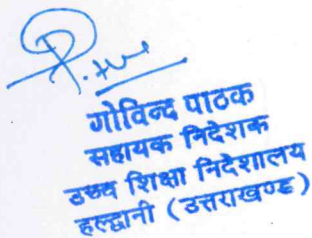 गोविन्द पाठक
सहायक निदेशक
उच्च शिक्षा निदेशालय
हल्द्वानी (उत्तराखण्ड)